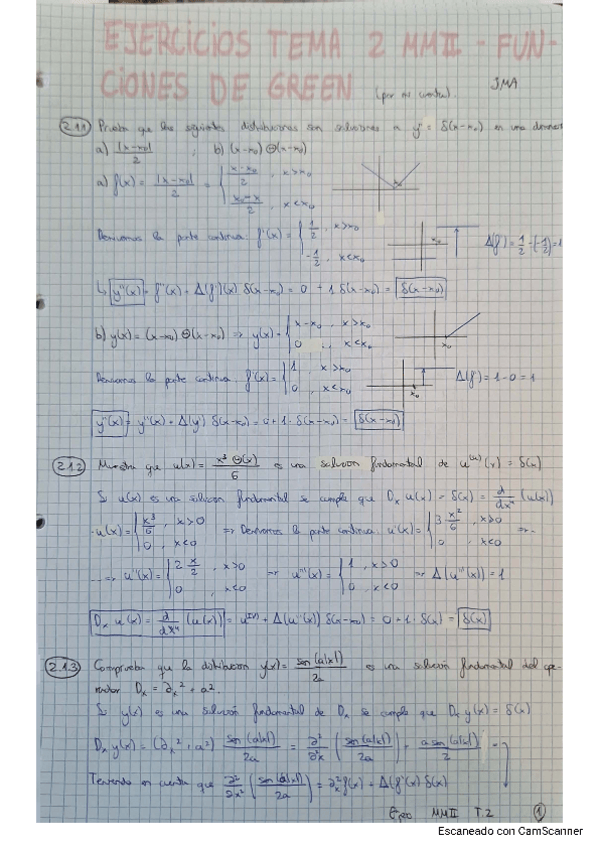 EJERCICIOS TEMA 2 MMII - FUN-
CIONES DE GREEN (por mi cuenta). JMA
2.1.1 Prueba que las siguientes distribuciones son soluciones a y'' = δ(x-x₀) en una dimen
a) |x-x₀|/2 , b) (x-x₀) Θ(x-x₀)
a) f(x) = |x-x₀|/2 = { x-x₀/2 , x>x₀
x₀-x/2 , x<x₀
x₀
Derivamos la parte continua f'(x) = { 1/2 , x>x₀
-1/2 , x<x₀
Δ(f') = 1/2 - (-1/2) = 1
↳ y''(x) = f''(x) + Δ(f')(x) δ(x-x₀) = 0 + 1 δ(x-x₀) = δ(x-x₀)
b) y(x) = (x-x₀) Θ(x-x₀) ⇒ y(x) = { x-x₀ , x>x₀
0 , x<x₀
x₀
Derivamos la parte continua f'(x) = { 1 , x>x₀
0 , x<x₀
x₀
Δ(f') = 1-0 = 1
y''(x) = y''(x) + Δ(y') δ(x-x₀) = 0 + 1·δ(x-x₀) = δ(x-x₀)
2.1.2 Muestra que u(x) = x³ Θ(x)/6 es una solución fundamental de u⁽ᴵⱽ⁾(x) = δ(x)
Si u(x) es una solución fundamental se cumple que Dₓ u(x) = δ(x) = d/dx⁴ (u(x))
· u(x) = { x³/6 , x>0
0 , x<0
⇒ Derivamos la parte continua u'(x) = { 3·x²/6 , x>0
0 , x<0
⇒ ..
... ⇒ u''(x) = { 2·x/2 , x>0
0 , x<0
⇒ u'''(x) = { 1 , x>0
0 , x<0
⇒ Δ(u'''(x)) = 1
Dₓ u(x) = d/dx⁴ (u(x)) = u⁽ᴵⱽ⁾ + Δ(u'''(x)) δ(x-x₀) = 0 + 1·δ(x) = δ(x)
2.1.3 Comprueba que la distribución y(x) = sen(a|x|)/2a es una solución fundamental del ope-
rador Dₓ = ∂ₓ² + a².
Si y(x) es una solución fundamental de Dₓ se cumple que Dₓ y(x) = δ(x)
Dₓ y(x) = (∂ₓ² + a²) sen(a|x|)/2a = ∂²/∂²x (sen(a|x|)/2a) + a sen(a|x|)/2
Teniendo en cuenta que ∂²/∂x² (sen(a|x|)/2a) = ∂ₓ² f(x) + Δ(f'(x)) δ(x)
MMII T.2 1
Escaneado con CamScanner